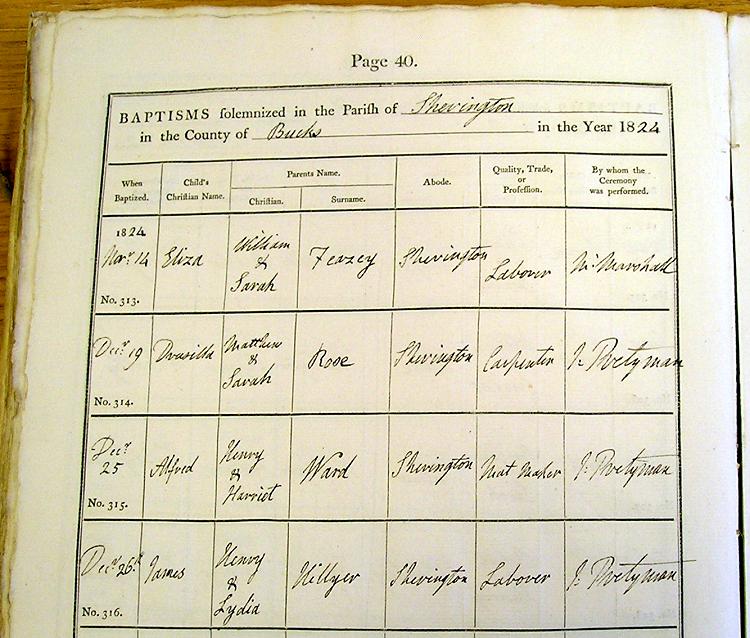 Page 40.
BAPTISMS solemnized in the Parish of Sherington
in the County of Bucks in the Year 1824
When Baptized.
Child's Christian Name.
Parents Name.
Christian.
Surname.
Abode.
Quality, Trade, or Profession.
By whom the Ceremony was performed.
1824
Novr. 14
No. 313.
Eliza
William
&
Sarah
Feazey
Sherington
Labourer
Decr. 19
No. 314.
Drusilla
Matthew
&
Sarah
Rose
Sherington
Carpenter
J. Pretyman
Decr.
25
No. 315.
Alfred
Henry
&
Harriet
Ward
Sherington
Mat Maker
J. Pretyman
Decr. 26th
No. 316.
James
Henry
&
Lydia
Hillyer
Sherington
Labourer
J. Pretyman